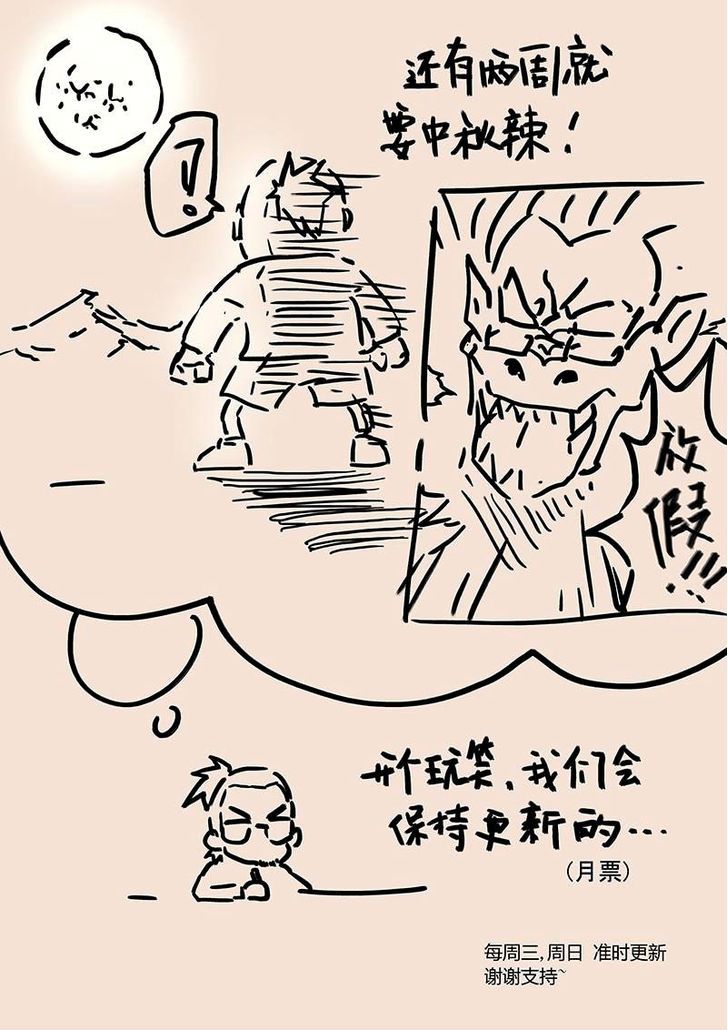 还有两周就
要中秋辣！
！
放
假!!!
开个玩笑，我们会
保持更新的…
（月票）
每周三,周日 准时更新
谢谢支持~